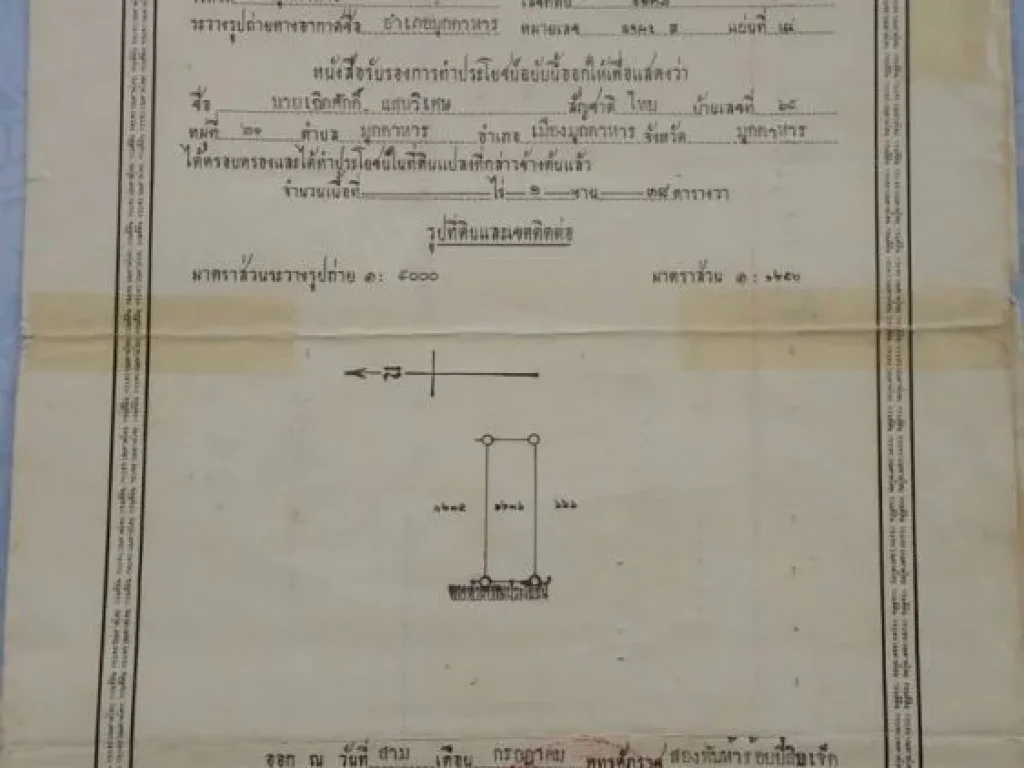 ระวางรูปถ่ายทางอากาศชื่อ อำเภอมุกดาหาร หมายเลข แผ่นที่
หนังสือรับรองการทำประโยชน์ฉบับนี้ออกให้เพื่อแสดงว่า
ชื่อ นายเชิดศักดิ์ แสนวิเศษ สัญชาติ ไทย บ้านเลขที่ ๒๘
หมู่ที่ ๒๑ ตำบล มุกดาหาร อำเภอ เมืองมุกดาหาร จังหวัด มุกดาหาร
ได้ครอบครองและได้ทำประโยชน์ในที่ดินแปลงที่กล่าวข้างต้นแล้ว
จำนวนเนื้อที่ ไร่ ๑ งาน ๓๘ ตารางวา
รูปที่ดินและเขตติดต่อ
มาตราส่วนระวางรูปถ่าย ๑ : ๕๐๐๐ มาตราส่วน ๑ : ๑๒๕๐
ออก ณ วันที่ สาม เดือน กรกฎาคม พุทธศักราช สองพันห้าร้อยยี่สิบเจ็ด